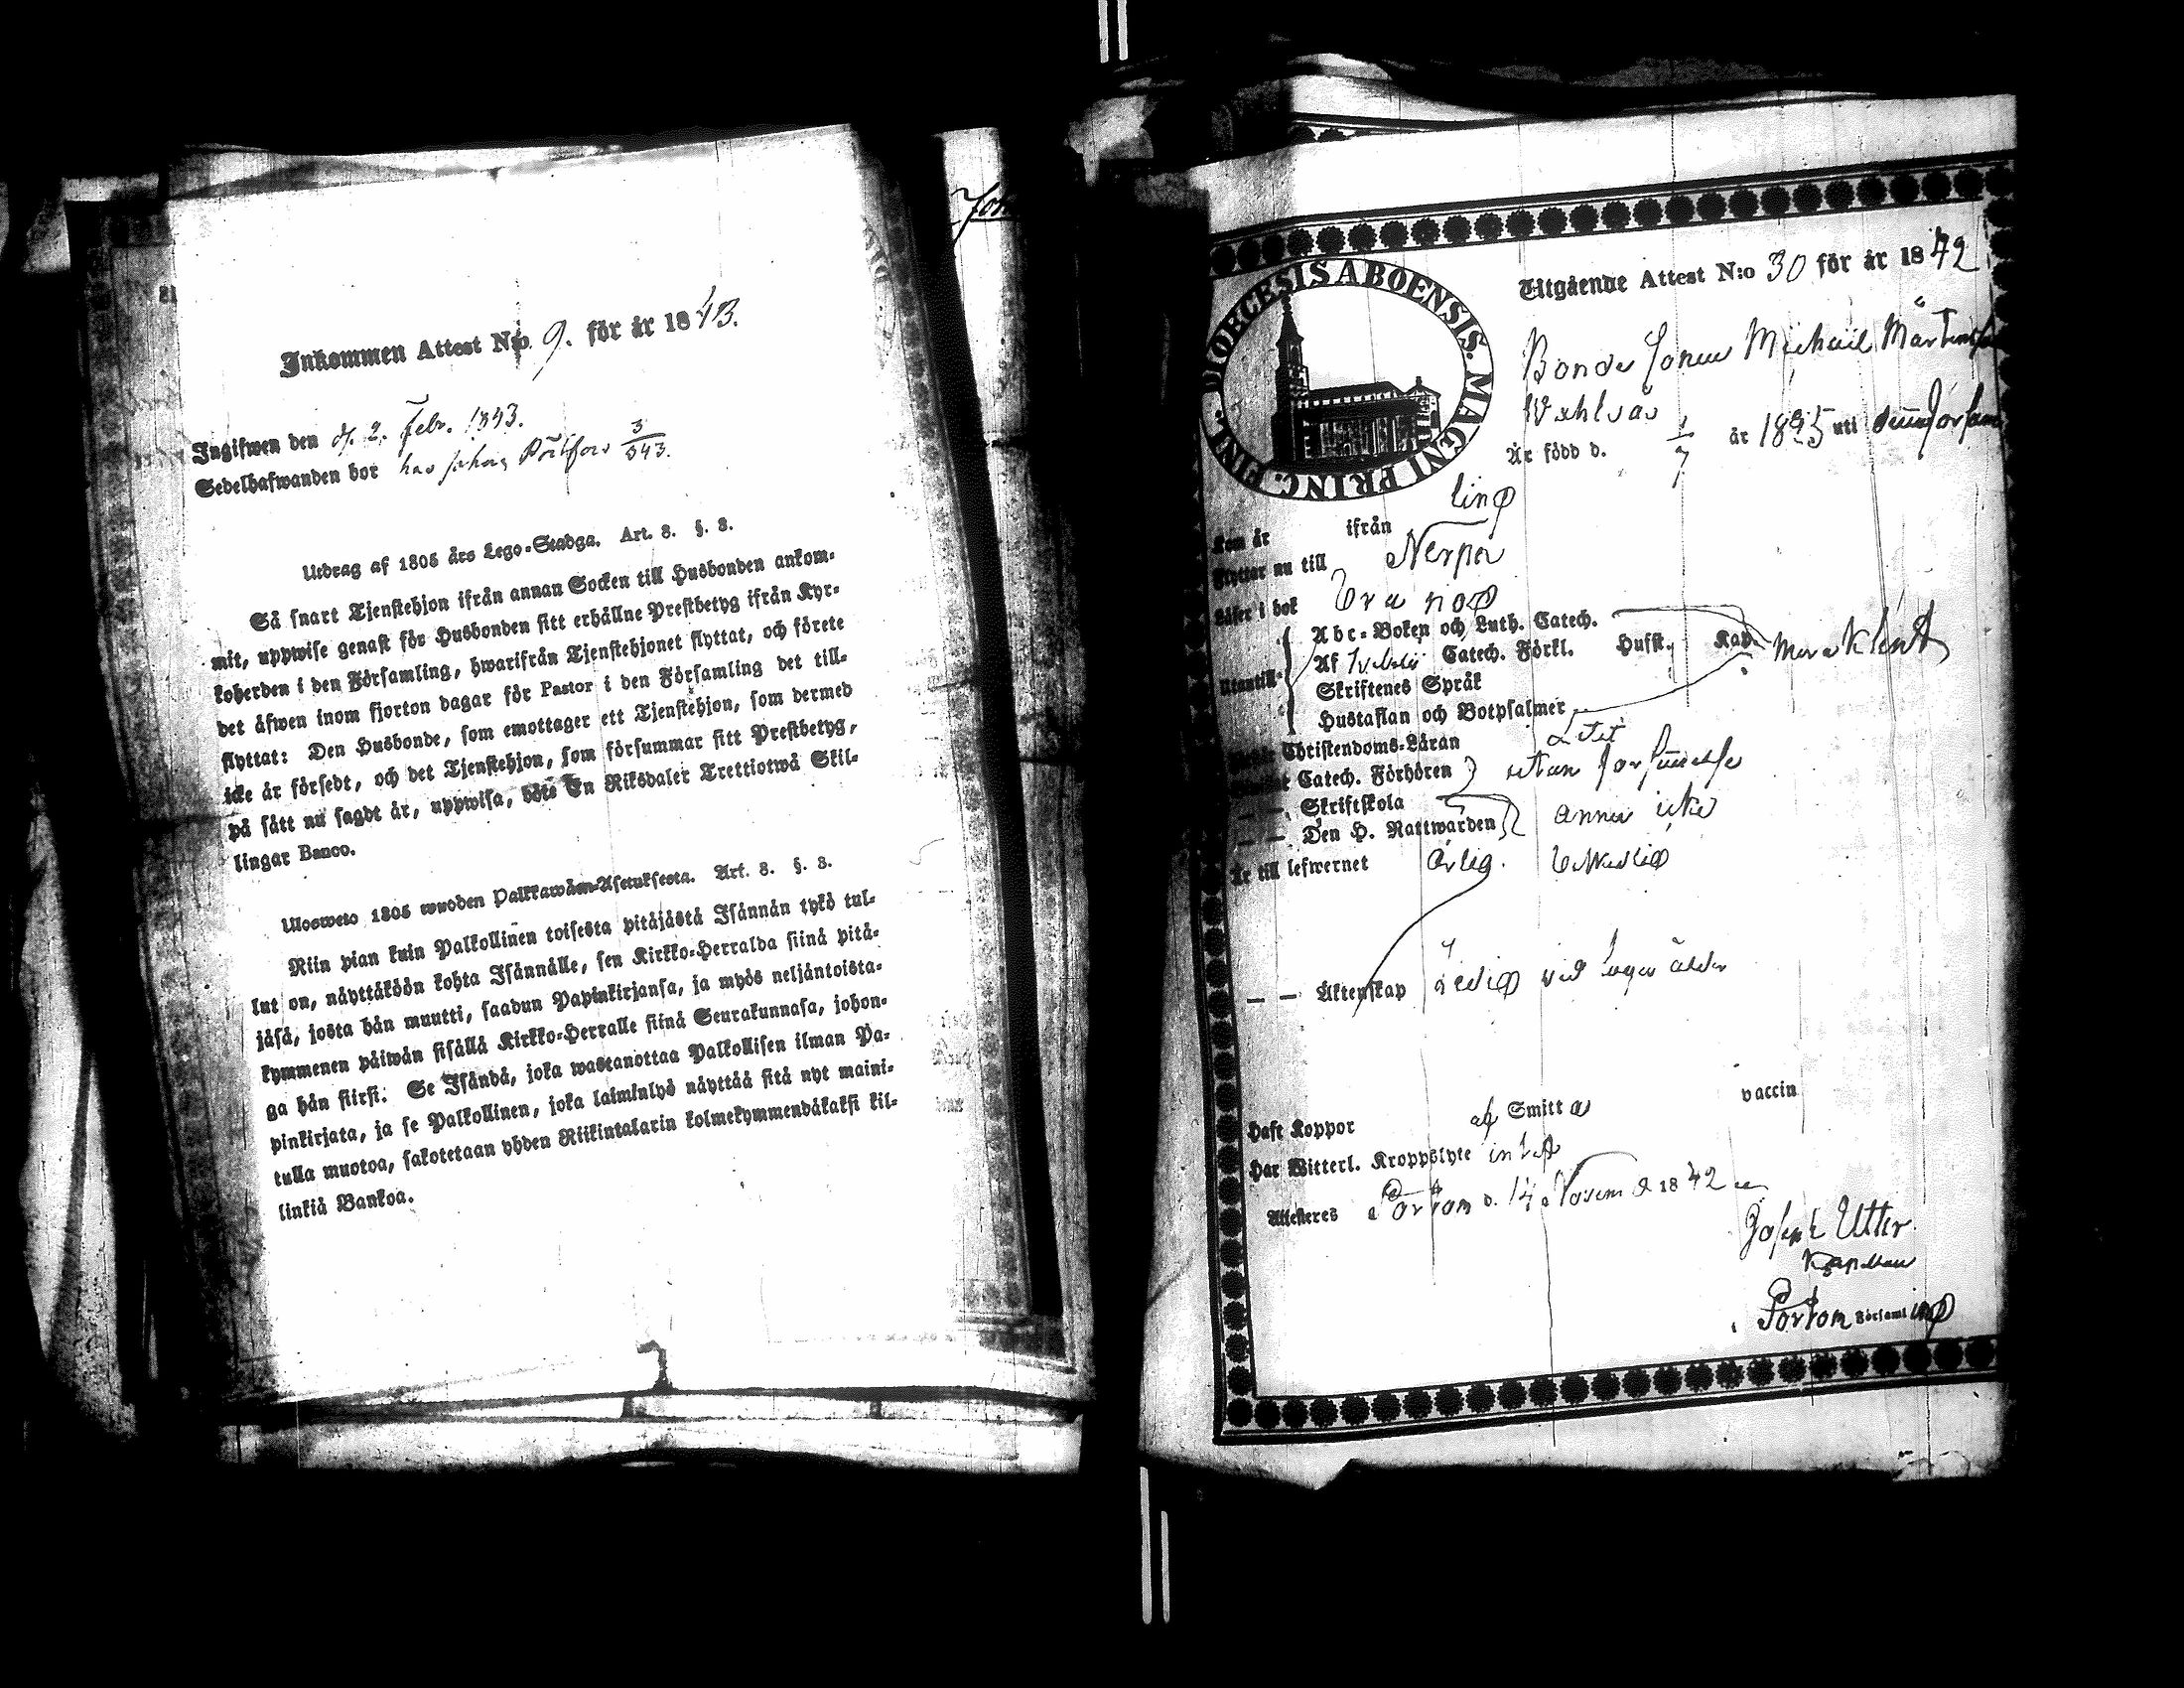 Inkommen Attest N:o 9. för år 1843.
Ingifwen den d. 2. Febr. 1843.
Sedelhafwanden bor hos 3/843.
Utdrag af 1805 års Lego-Stadga. Art. 8. §. 8.
Så snart Tjenstehjon ifrån annan Socken till Husbonden ankom-
mit, uppwise genast för Husbonden sitt erhållne Prestbetyg ifrån Kyr-
koherden i den Församling, hwarifrån Tjenstehjonet flyttat, och förete
det äfwen inom fjorton dagar för Pastor i den Församling det till-
flyttat: Den Husbonde, som emottager ett Tjenstehjon, som dermed
icke är försedt, och det Tjenstehjon, som försummar sitt Prestbetyg,
på sätt nu sagdt är, uppwisa, böte En Riksdaler Trettiotwå Skil-
lingar Banco.
Ulosweto 1805 wuoden Palkkawäen-Asetuksesta. Art. 8. §. 8.
Niin pian kuin Palkollinen toisesta pitäjästä Isännän tykö tul-
lut on, näyttäköön kohta Isännälle, sen Kirkko-Herralda siinä pitä-
jäsä, josta hän muutti, saadun Papinkirjansa, ja myös neljäntoista-
kymmenen päiwän sisällä Kirkko-Herralle siinä Seurakunnasa, johon-
ga hän siirsi: Se Isändä, joka wastanottaa Palkollisen ilman Pa-
pinkirjata, ja se Palkollinen, joka laiminlyö näyttää sitä nyt maini-
tulla muotoa, sakotetaan yhden Riikintalarin kolmekymmendäkaksi kil-
linkiä Bankoa.
Joh
DIOECESIS ABOENSIS. MAGNI PRINC. FINL.
Utgående Attest N:o 30 för år 1842
Bonde Michail Mårtens
Är född d. 1/7 år 18 5 uti
ling
Kom år ifrån
Flyttar nu till Nerpes
Läser i bok
Utantill Abc-Boken och Luth. Catech.
Af Catech. Förkl. Husst. Kap.
Skriftenes Språk
Hustaflan och Botpsalmer
Christendoms-Läran
Catech. Förhören utan
— — Skriftskola
— — Den H. Nattwarden ännu icke
Är till lefwernet ärlig.
— — Äktenskap Ledig wid laga ålder
Haft Koppor af Smitta vaccin
Har Witterl. Kroppslyte intet
Attesteres Pörtom d. 14 Novem 1842 av
Joseph Utter.
Kapellan
Pörtom Församling